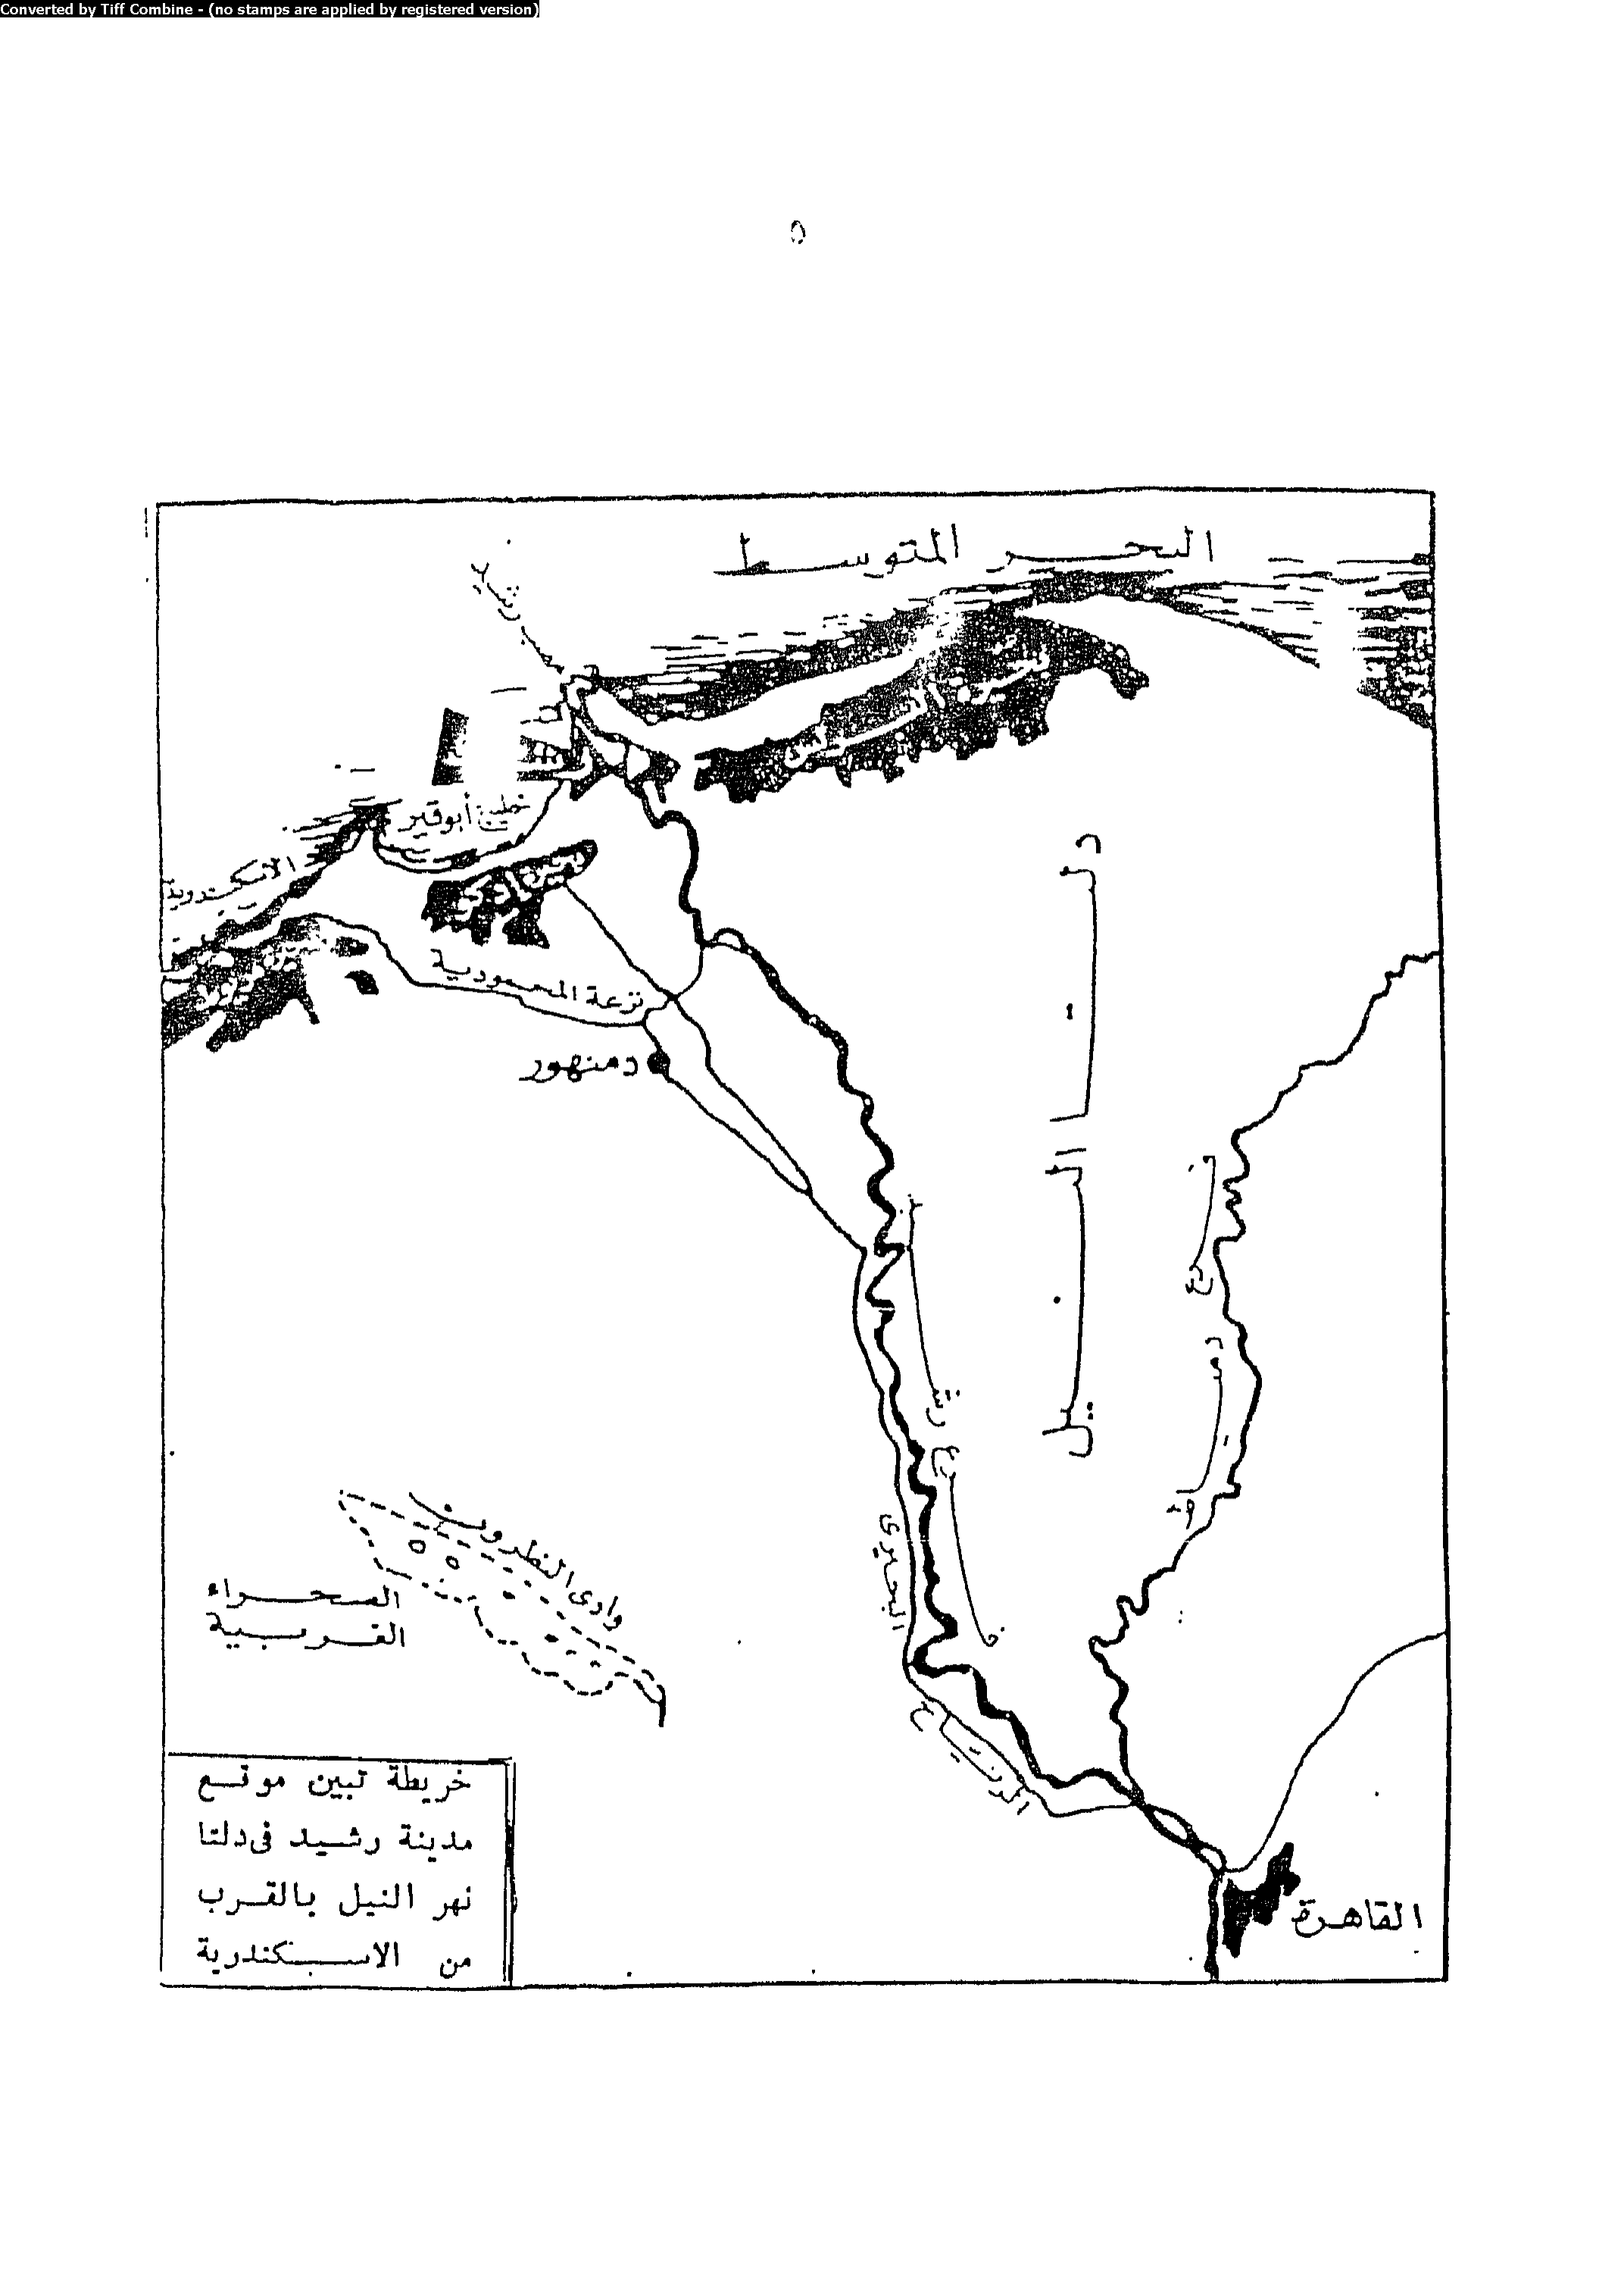 Converted by Tiff Combine - (no stamps are applied by registered version)
٥
البحر المتوسط
رشيد
خليج أبوقير
الاسكندرية
ترعة المحمودية
دمنهور
دلتا النيل
فرع رشيد
فرع دمياط
البحيرى
وادى النطرون
الصحراء
الغربية
القاهرة
خريطة تبين موقع
مدينة رشيد فى دلتا
نهر النيل بالقرب
من الاسكندرية